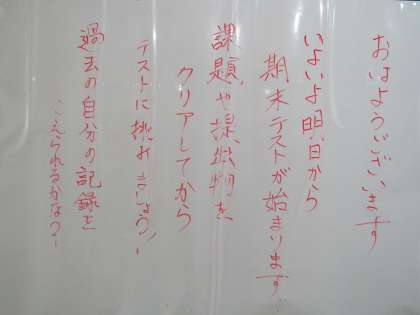 おはようございます
いよいよ明日から
期末テストが始まります
課題や提出物を
クリアしてから
テストに挑みましょう!
過去の自分の記録を
こえられるかな?